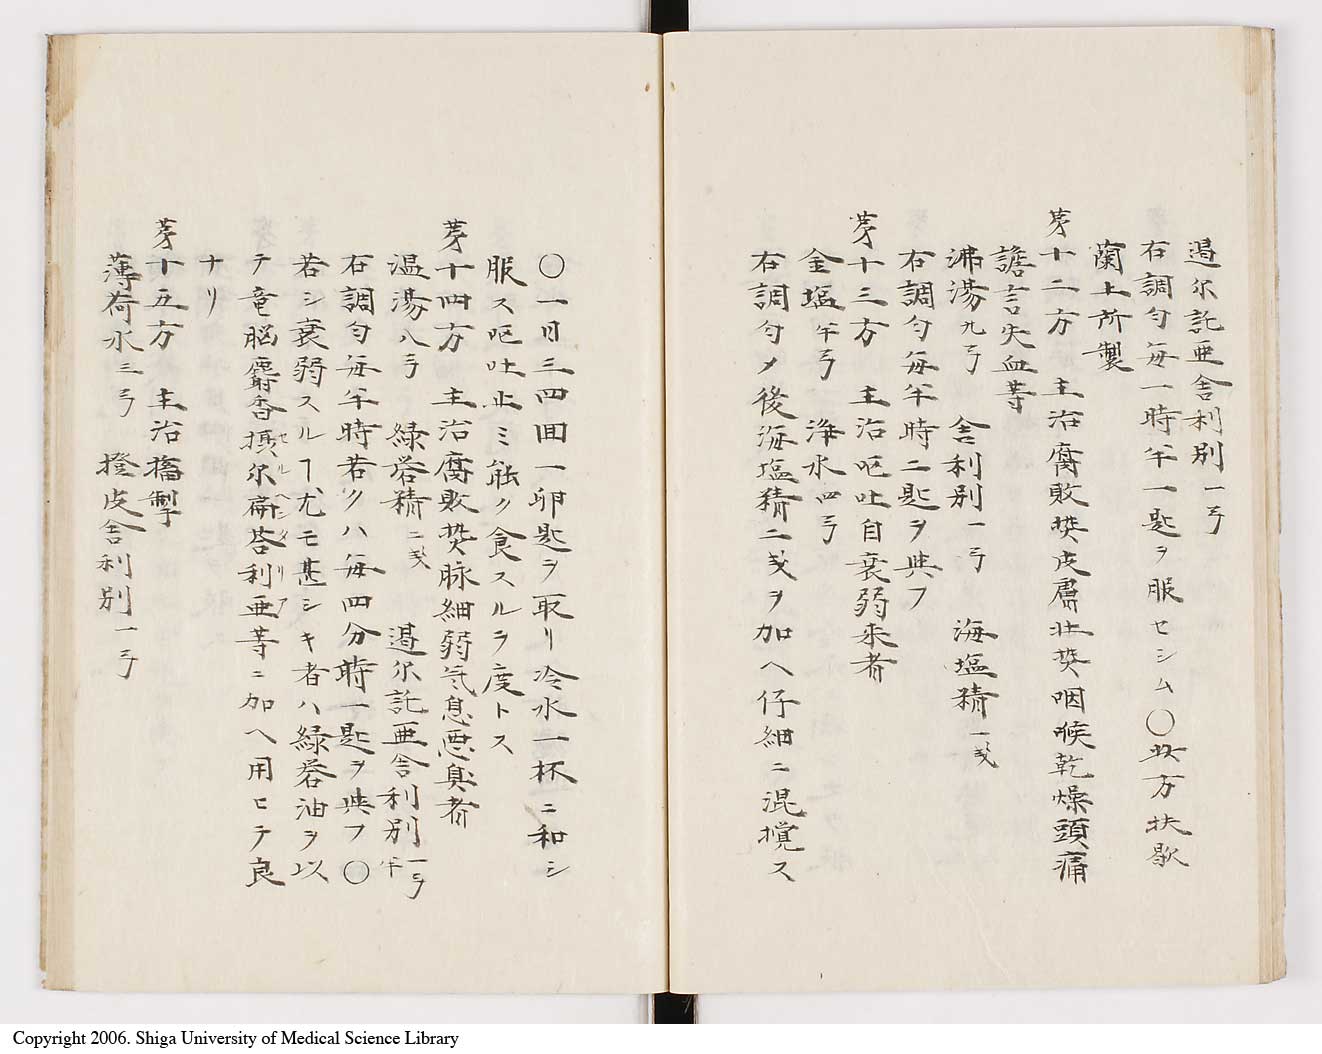 遏尓託亜舎利別一弓
右調匀毎一時半一匙ヲ服セシム〇此方扶歇
蘭土所製
㐧十二方 主治腐敗焚皮膚壮焚咽喉乾燥頭痛
譫言失血等
沸湯九弓 舎利別一弓 海塩精一戔
右調匀毎半時二匙ヲ與フ
㐧十三方 主治呕吐自衰弱来者
金塩半弓 浄水四弓
右調匀メ後海塩精二戔ヲ加ヘ仔細ニ混攪ス
〇一日三四回一卵匙ヲ取リ冷水一杯ニ和シ
服ス呕吐止ミ能ク食スルヲ度トス
㐧十四方 主治腐敗焚脉細弱気息悪臭者
温湯八弓 緑礬精二戔 遏尓託亜舎利別一弓半
右調匀毎半時若クハ毎四分時一匙ヲ與フ〇
若シ衰弱スルヿ尤モ甚シキ者ハ緑礬油ヲ以
テ竜脳麝香摂尓扁答利亜等ニ加ヘ用ヒテ良
セルヘンタリア
ナリ
㐧十五方 主治搐掣
薄荷水三弓 橙皮舎利別一弓
Copyright 2006. Shiga University of Medical Science Library